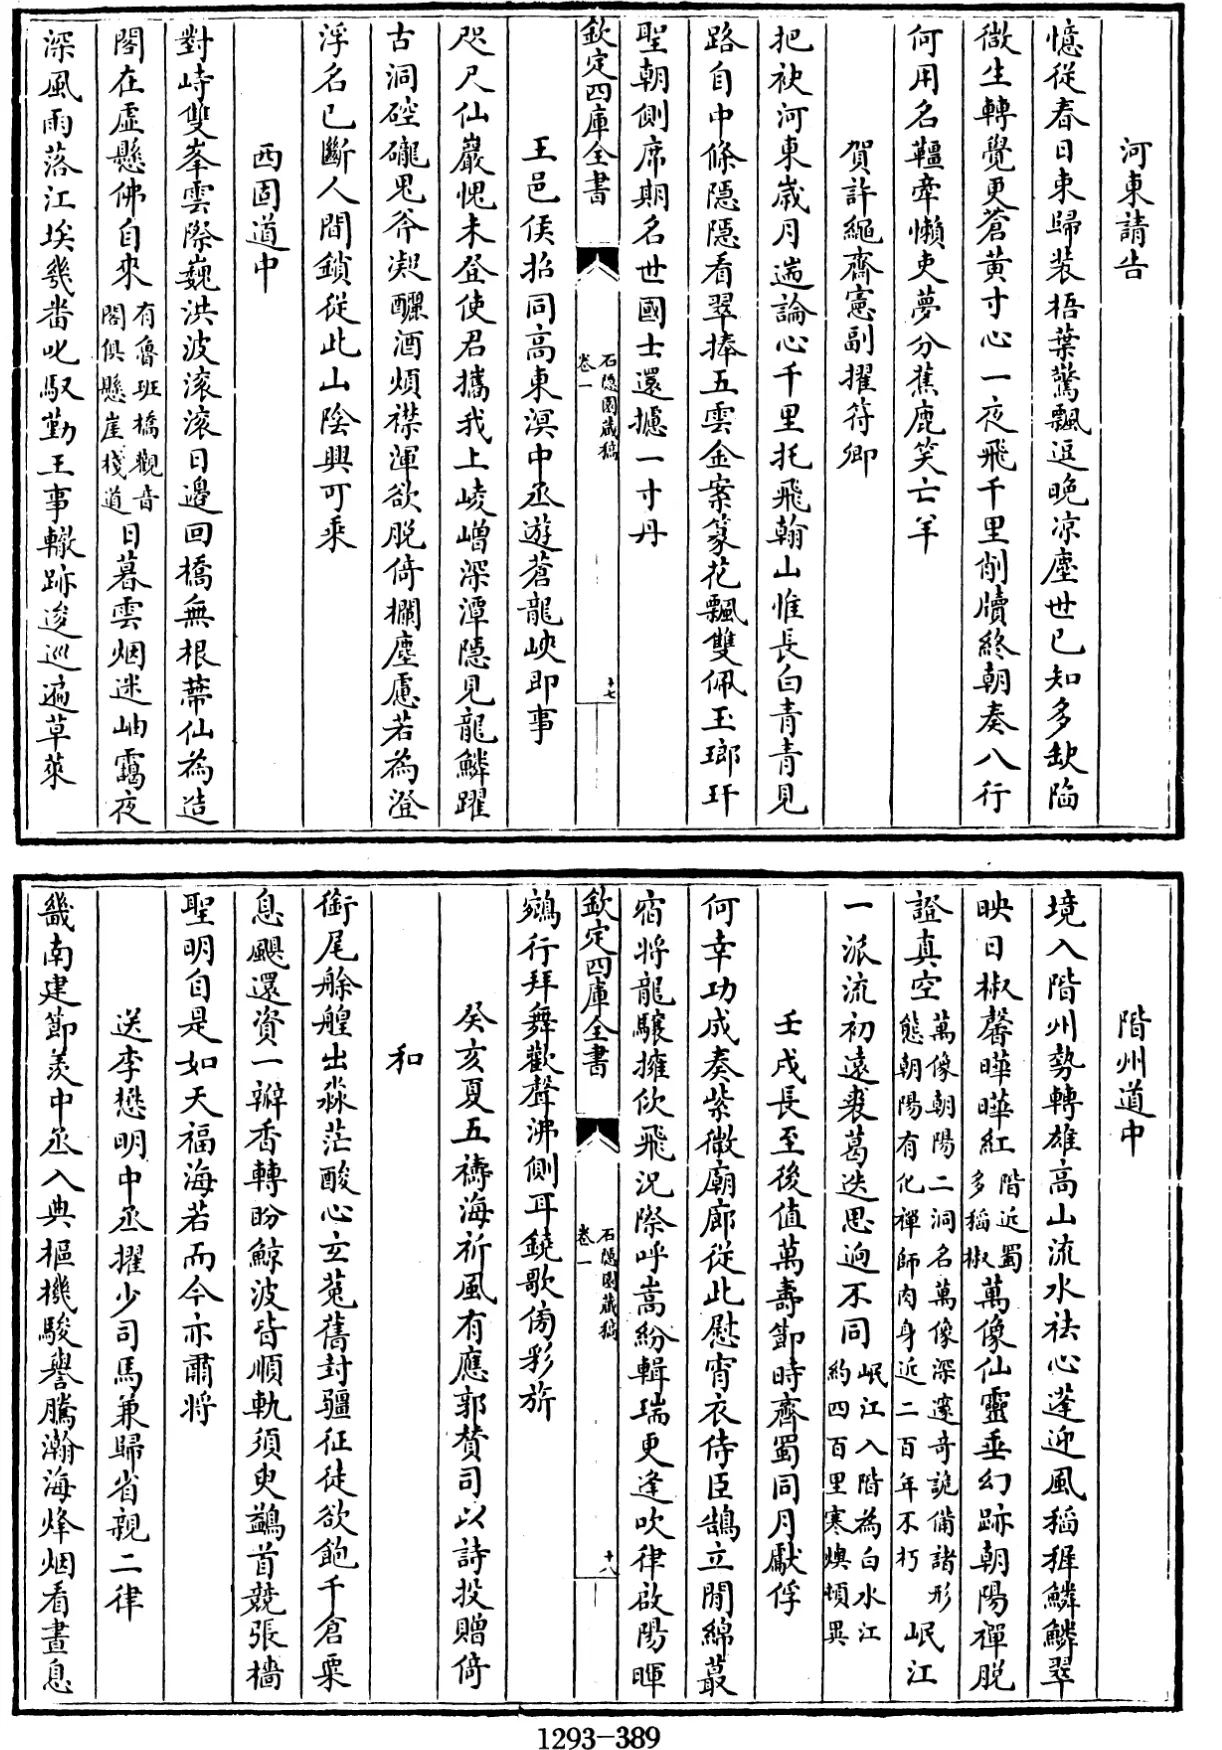 河東請告
憶從春日束歸裝梧葉驚飄逗晚凉塵世已知多缺陷
微生轉覺更蒼黄寸心一夜飛千里削牘終朝奏八行
何用名韁牽懶吏夢分蕉鹿笑亡羊
賀許繩齋憲副擢符卿
把袂河東歲月遄論心千里托飛翰山惟長白青青見
路自中條隱隱看翠捧五雲金案篆花飄雙佩玉瑯玕
聖朝側席期名世國士還攄一寸丹
欽定四庫全書
石隱園藏稿
卷一
十七
王邑侯招同高東溟中丞遊蒼龍峽即事
咫尺仙巖愧未登使君攜我上崚嶒深潭隱見龍鱗躍
古洞硿礲鬼斧凝釃酒煩襟渾欲脱倚欄塵慮若為澄
浮名已斷人間鎖從此山陰興可乘
西固道中
對峙雙峯雲際巍洪波滚滚日邊回橋無根蒂仙為造
閣在虛懸佛自來有魯班橋觀音閣俱懸崖棧道日暮雲烟迷岫靄夜
深風雨落江埃幾畨叱馭勤王事轍跡逡巡遍草萊
階州道中
境入階州勢轉雄高山流水祛心蓬迎風稻稚鱗鱗翠
映日椒馨曄曄紅階近蜀多稻椒萬像仙靈垂幻跡朝陽禪脱
證真空萬像朝陽二洞名萬像深邃奇詭備諸形態朝陽有化禪師肉身近二百年不朽岷江
一派流初遠裘葛迭思逈不同岷江入階為白水江約四百里寒燠頓異
壬戌長至後值萬壽節時齊蜀同月獻俘
何幸功成奏紫微廟廊從此慰宵衣侍臣鵠立閒綿蕞
宿將龍驤擁佽飛況際呼嵩紛輯瑞更逢吹律啟陽暉
欽定四庫全書
石隱園藏稿
卷一
十八
鵷行拜舞歡聲沸側耳鐃歌傍彩旂
癸亥夏五禱海祈風有應郭贊司以詩投贈倚
和
銜尾艅艎出淼茫酸心玄菟舊封疆征徒欲飽千倉粟
息颶還資一瓣香轉盼鯨波皆順軌須臾鷁首競張檣
聖明自是如天福海若而今亦肅將
送李懋明中丞擢少司馬兼歸省親二律
畿南建節羨中丞入典樞機駿譽騰瀚海烽烟看晝息
1293-389